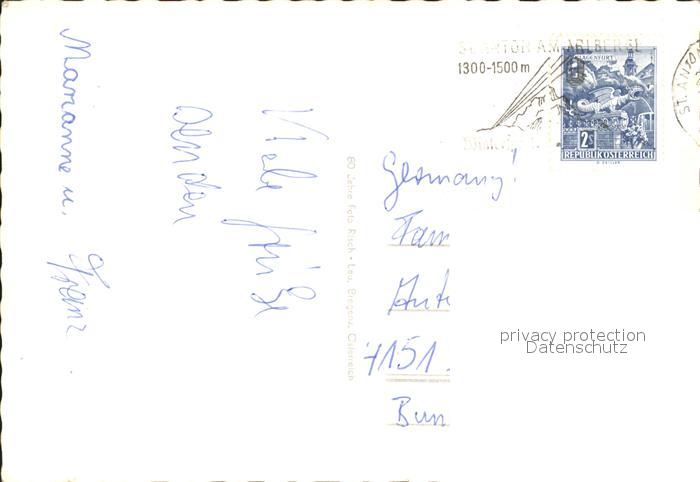 ST. ANTON AM ARLBERG
1300-1500 m
ST. ANTO
KLAGENFURT
2 S
REPUBLIK ÖSTERREICH
Viele Grüße
senden
Marianne u. Franz
80 Jahre Foto Risch-Lau, Bregenz, Österreich
Germany!
Fam
4151.
privacy protection
Datenschutz